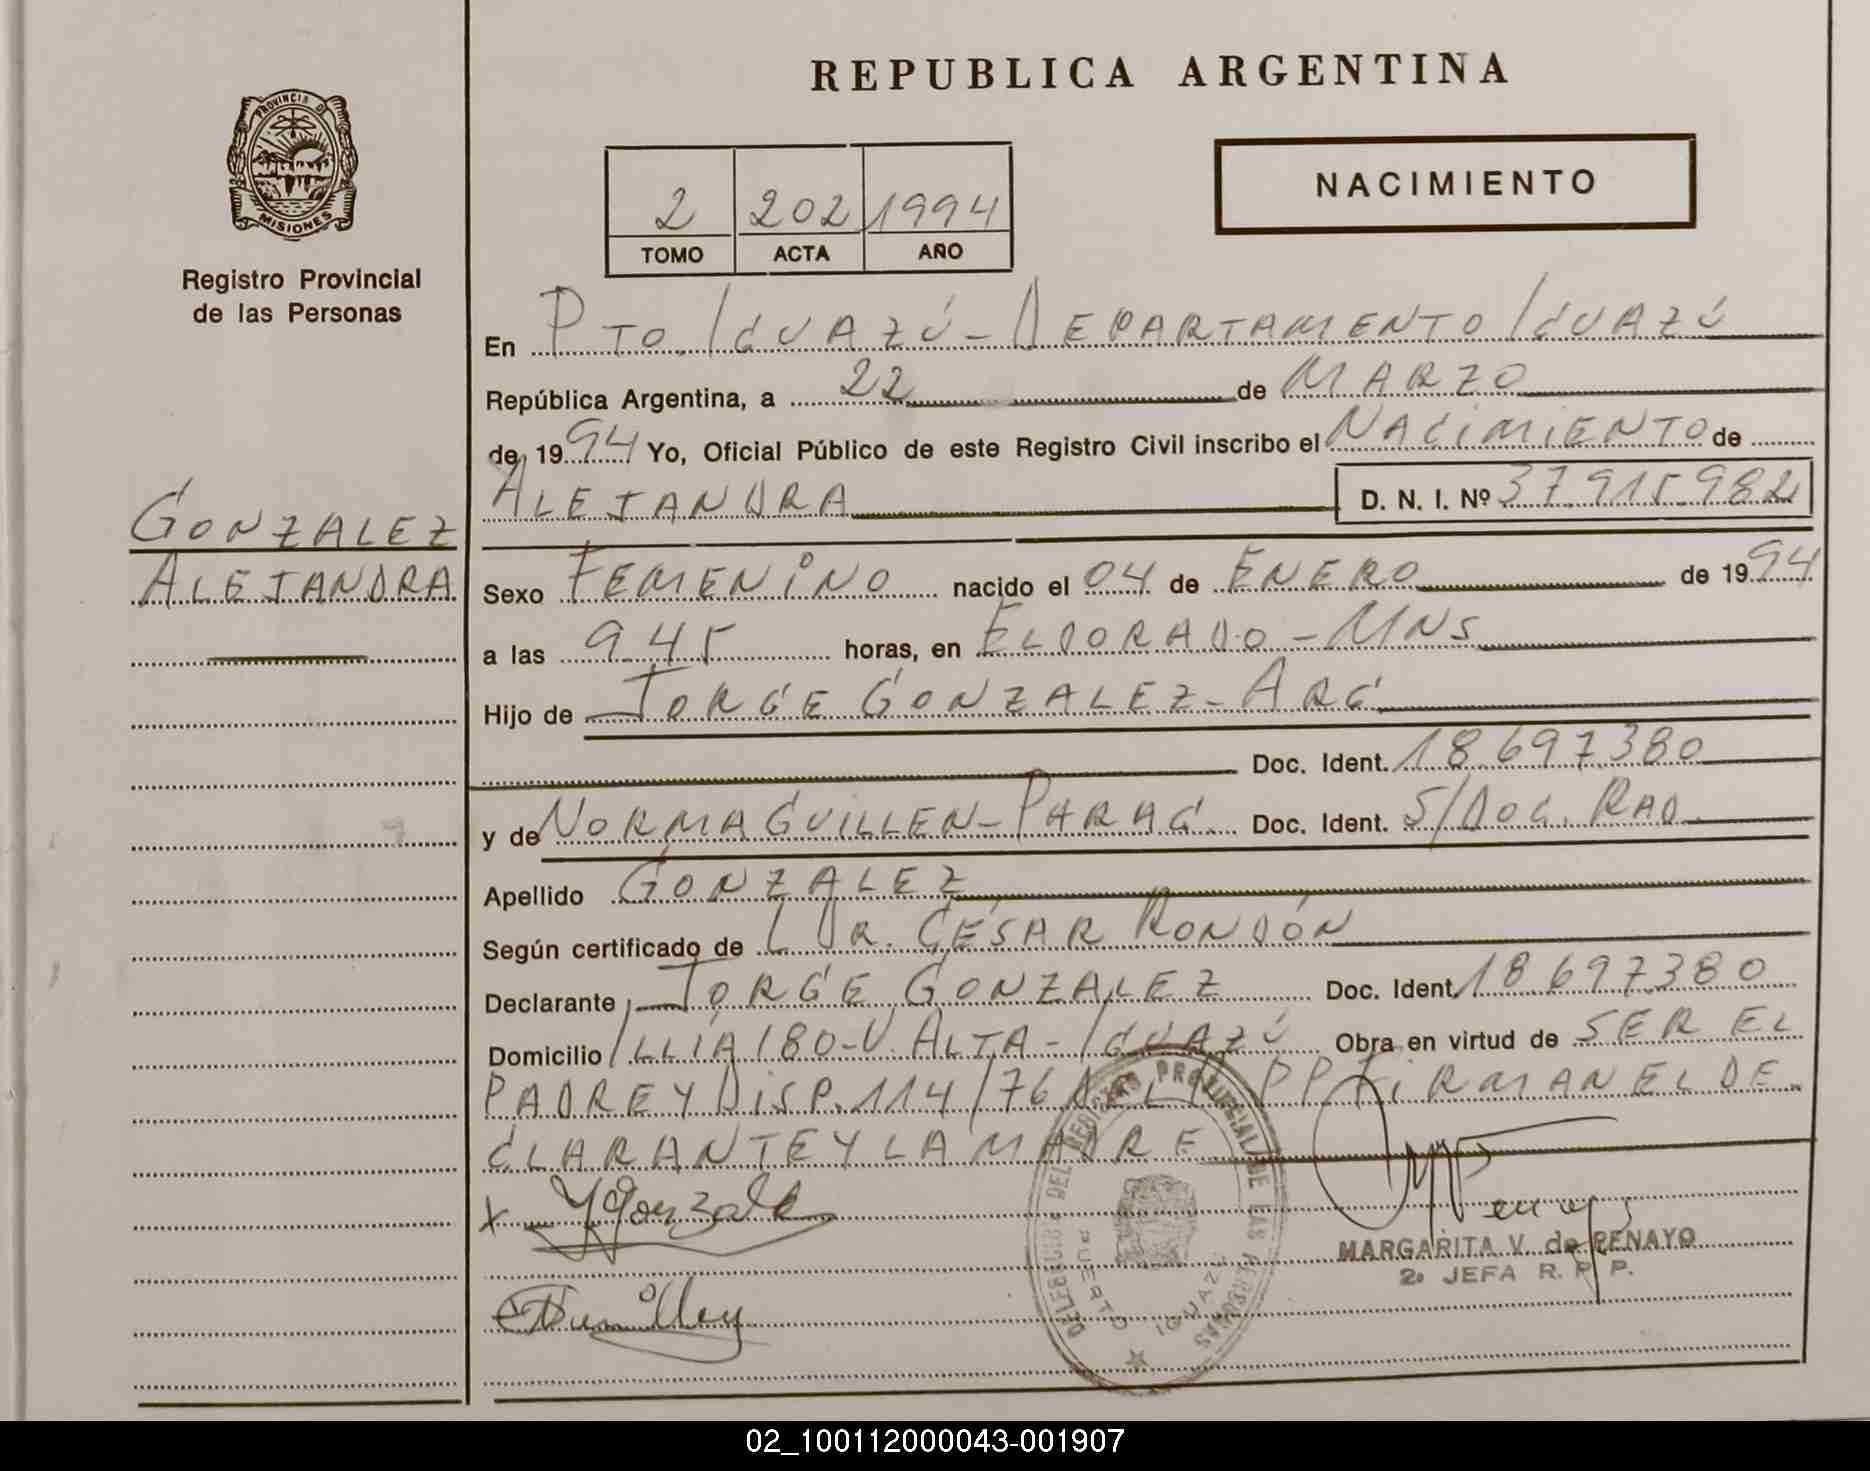 REPUBLICA ARGENTINA
PROVINCIA DE
MISIONES
Registro Provincial
de las Personas
2 202 1994
TOMO ACTA AÑO
NACIMIENTO
En PTO. IGUAZÚ - DEPARTAMENTO IGUAZÚ
República Argentina, a 22 de MARZO
de 1994 Yo, Oficial Público de este Registro Civil inscribo el NACIMIENTO de
ALEJANDRA D. N. I. Nº 37.915.982
GONZALEZ
ALEJANDRA
Sexo FEMENINO nacido el 04 de ENERO de 1994
a las 9.45 horas, en ELDORADO - MNS
Hijo de JORGE GONZALEZ - ARG
Doc. Ident. 18.697.380
y de NORMA GUILLEN - PARAG. Doc. Ident. S/DOC. RAD.
Apellido GONZALEZ
Según certificado de L DR. CÉSAR RONDÓN
Declarante JORGE GONZALEZ Doc. Ident. 18.697.380
Domicilio ILLIA 180 - V. ALTA - IGUAZÚ Obra en virtud de SER EL
PADRE Y DISP. 114/76 DEL R PP FIRMAN EL DE
CLARANTE Y LA MADRE
X JGonzalez
MARGARITA V. de PENAYO
2ª JEFA R. P. P.
DELEGACIÓN DEL REGISTRO PROVINCIAL DE LAS PERSONAS
PUERTO IGUAZÚ
02_100112000043-001907